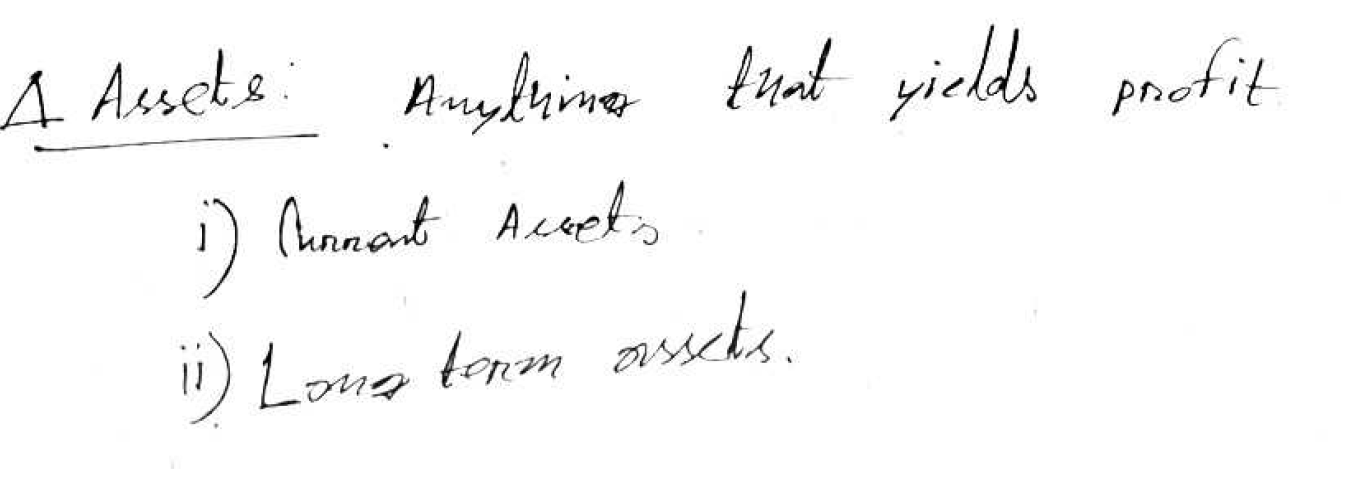 Δ Assets: Anything that yields profit
i) Current Assets
ii) Long term assets.